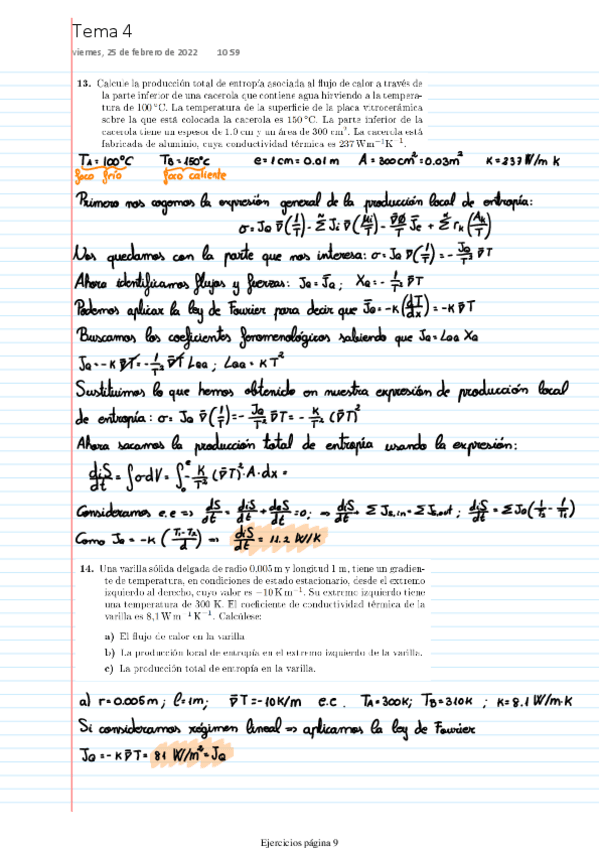 Tema 4
viernes, 25 de febrero de 2022 10:59
13. Calcule la producción total de entropía asociada al flujo de calor a través de
la parte inferior de una cacerola que contiene agua hirviendo a la tempera-
tura de 100 °C. La temperatura de la superficie de la placa vitrocerámica
sobre la que está colocada la cacerola es 150 °C. La parte inferior de la
cacerola tiene un espesor de 1.0 cm y un área de 300 cm². La cacerola está
fabricada de aluminio, cuya conductividad térmica es 237 W m⁻¹K⁻¹.
T_A = 100°C T_B = 150°C e = 1cm = 0.01 m A = 300cm² = 0.03m² K = 237 W/m K
foco frío foco caliente
Primero nos cogemos la expresión general de la producción local de entropía:
σ = J_Q ∇(1/T) - Σ J_i ∇(μ_i/T) - ∇Ø/T J_e + Σ r_k (A_k/T)
Nos quedamos con la parte que nos interesa: σ = J_Q ∇(1/T) = - J_Q/T² ∇T
Ahora identificamos flujos y fuerzas: J_Q = J_Q ; X_Q = - 1/T² ∇T
Podemos aplicar la ley de Fourier para decir que J_Q = -K (dT/dx) = -K ∇T
Buscamos los coeficientes fenomenológicos sabiendo que J_Q = L_QQ X_Q
J_Q = -K ∇T = - 1/T² ∇T L_QQ ; L_QQ = K T²
Sustituimos lo que hemos obtenido en nuestra expresión de producción local
de entropía: σ = J_Q ∇(1/T) = - J_Q/T² ∇T = - K/T² (∇T)²
Ahora sacamos la producción total de entropía usando la expresión:
diS/dt = ∫σ dV = ∫₀ᵉ - K/T² (∇T)² · A · dx =
Consideramos e.e => dS/dt = diS/dt + deS/dt = 0 ; => diS/dt + Σ J_s,in = Σ J_s,out ; diS/dt = Σ J_Q (1/T₂ - 1/T₁)
Como J_Q = -K (T₁-T₂/d) => diS/dt = 11.2 W/K
14. Una varilla sólida delgada de radio 0.005 m y longitud 1 m, tiene un gradien-
te de temperatura, en condiciones de estado estacionario, desde el extremo
izquierdo al derecho, cuyo valor es −10 K m⁻¹. Su extremo izquierdo tiene
una temperatura de 300 K. El coeficiente de conductividad térmica de la
varilla es 8,1 W m⁻¹ K⁻¹. Calcúlese:
a) El flujo de calor en la varilla
b) La producción local de entropía en el extremo izquierdo de la varilla.
c) La producción total de entropía en la varilla.
a) r = 0.005m ; l = 1m ; ∇T = -10K/m e.c. T_A = 300K ; T_B = 310K ; K = 8.1 W/m·K
Si consideramos régimen lineal => aplicamos la ley de Fourier
J_Q = -K ∇T = 81 W/m² = J_Q
Ejercicios página 9